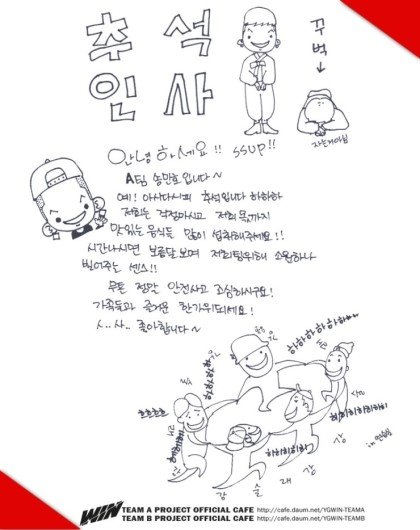 추석
인사
꾸벅
→
자는거아님
안녕하세요!! SSUP!!
A팀 송민호입니다~
예! 아시다시피 추석입니다 하하하
저희는 걱정마시고 저희 몫까지
맛있는 음식들 많이 섭취해주세요!!
시간나시면 보름달 보며 저희팀위해 소원하나
빌어주는 센스!!
무튼 정말 안전사고 조심하시구요!
가족들과 즐거운 한가위되세요!
ㅅ..사.. 좋아합니다~
하하하하하하
호호호호호
히히히히히히히
강 술 래 강
WIN TEAM A PROJECT OFFICIAL CAFE http://cafe.daum.net/YGWIN-TEAMA
TEAM B PROJECT OFFICIAL CAFE http://cafe.daum.net/YGWIN-TEAMB